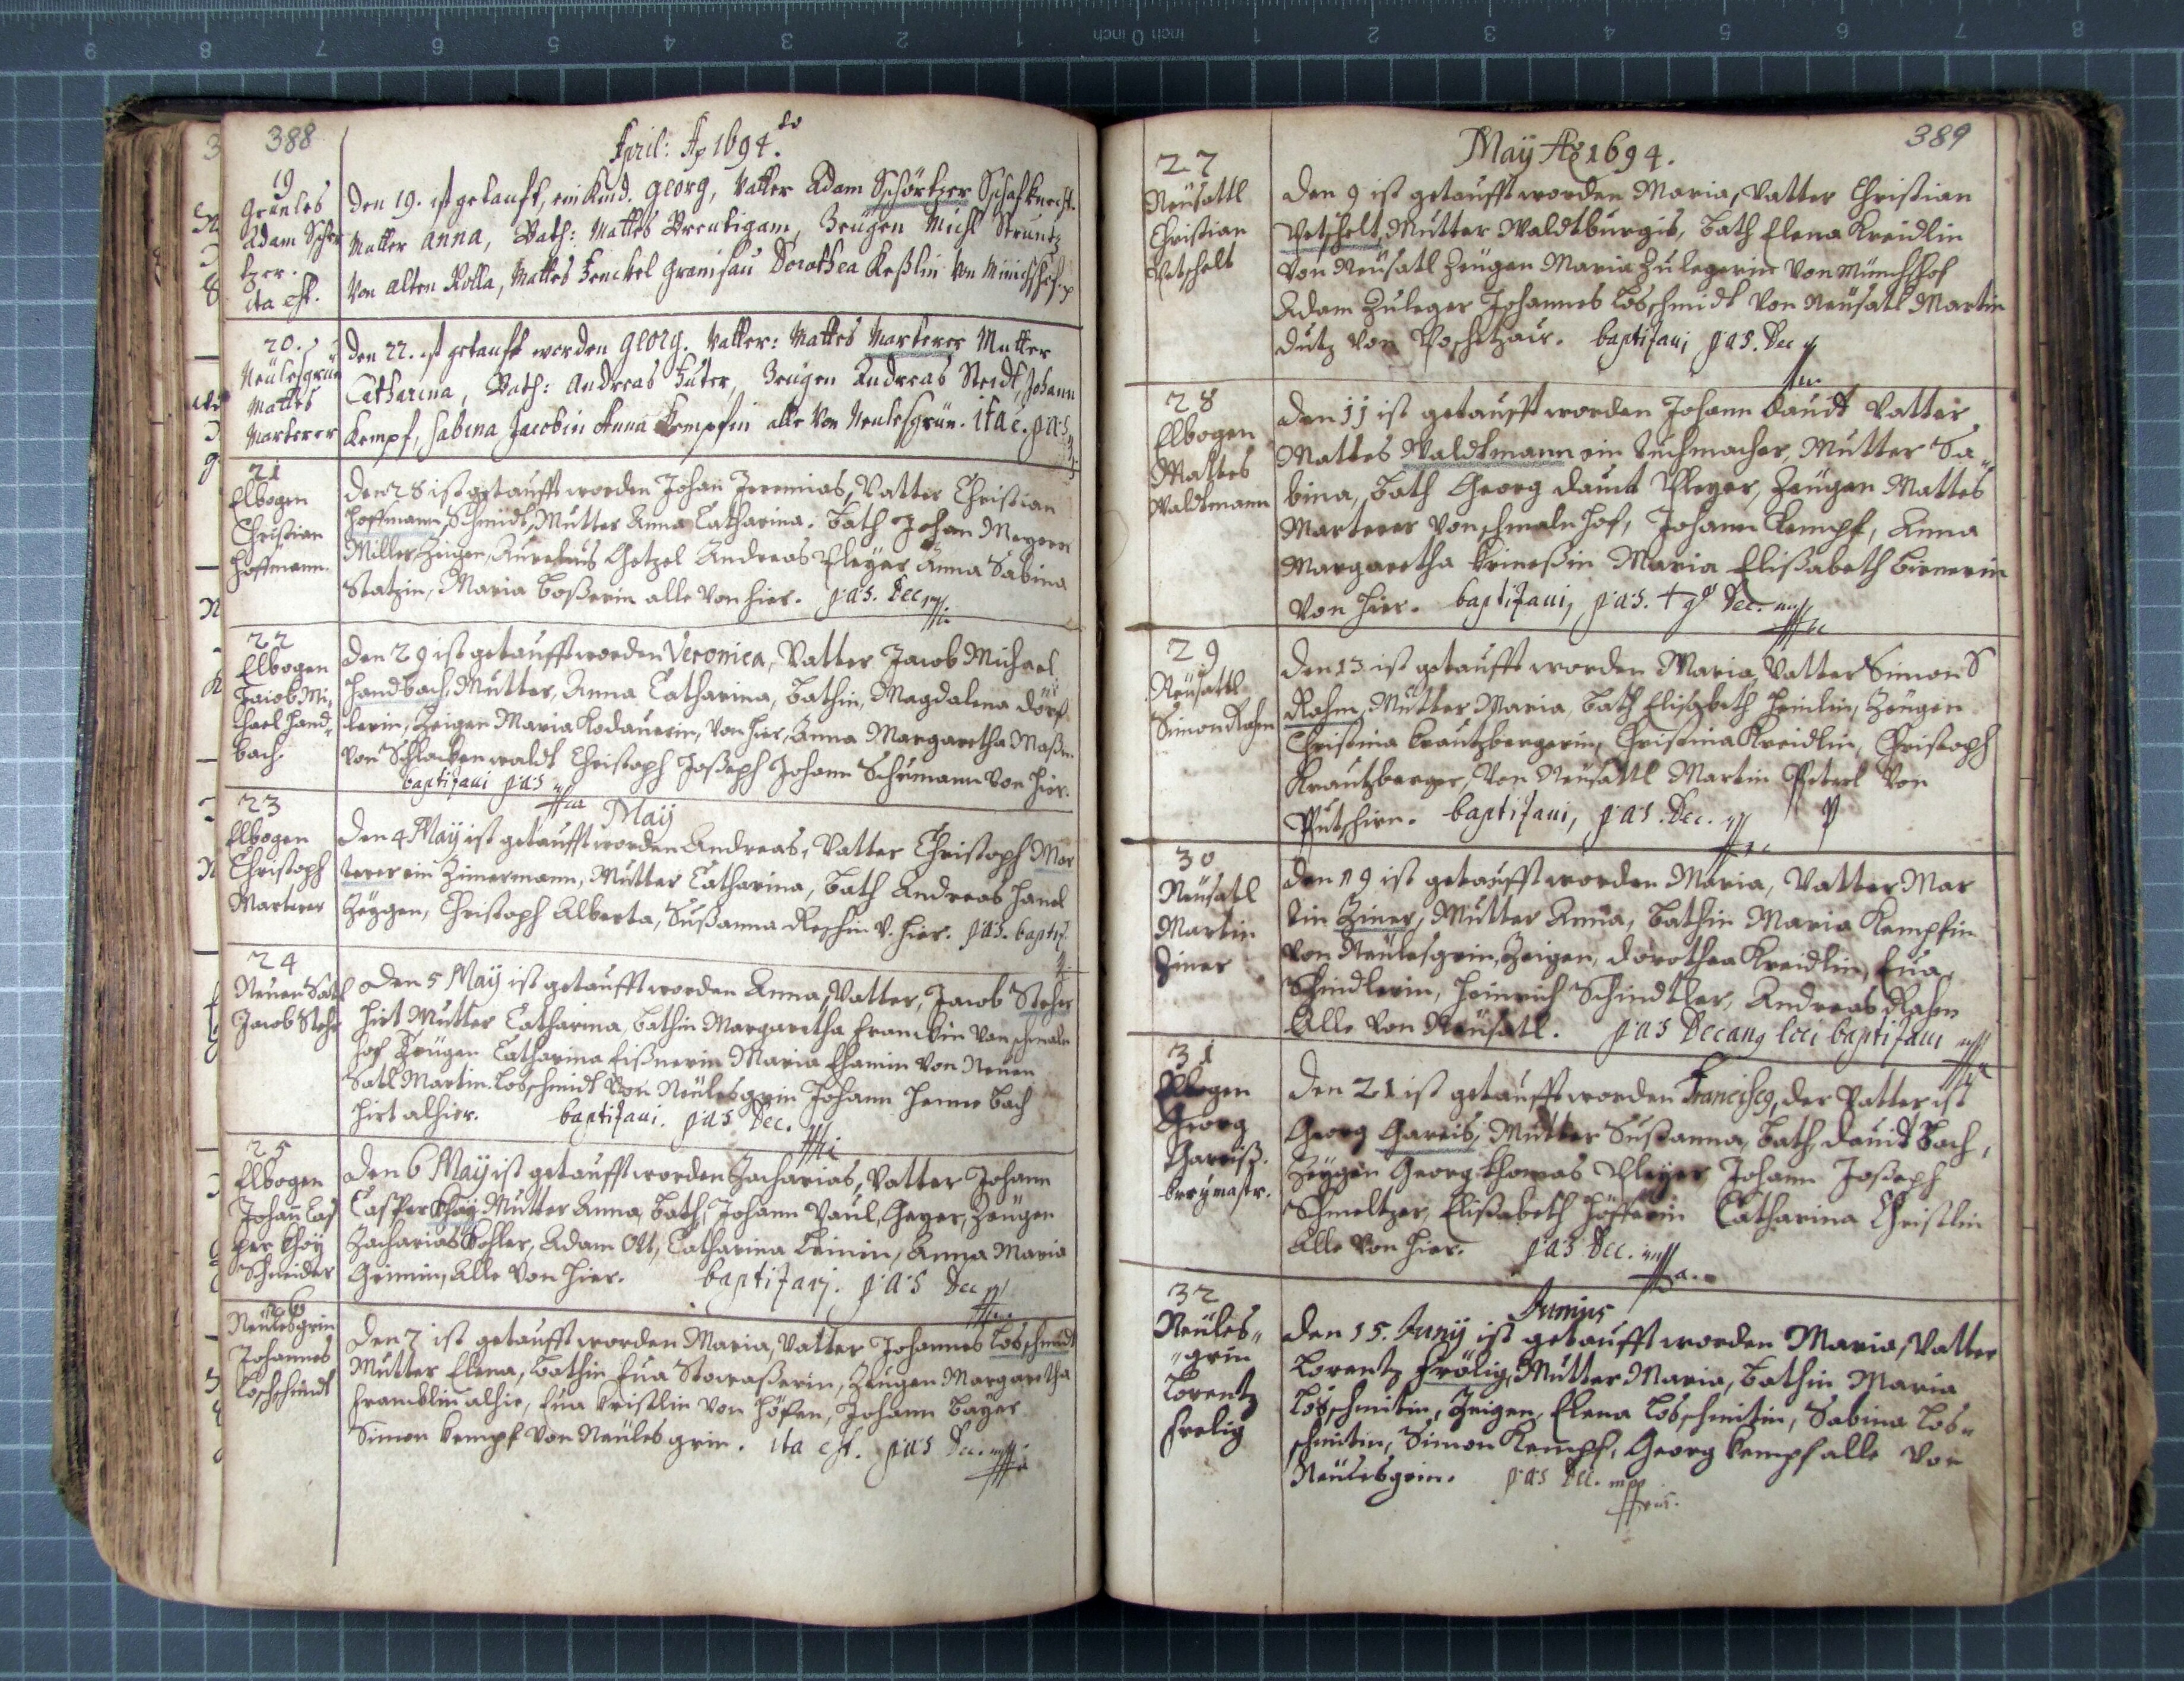 388
April: Ao 1694.
19
Grünles
Adam Schör
tzer.
ita est.
Den 19. ist getauft, ein Kind. Georg, Vatter Adam Schörtzer Schafknecht.
Mutter Anna, Path: Mattes Breutigam, Zeugen Michl Steuntz
von alten Rolla, Mattes Zenckel Granisau Dorothea Keßlin von Minichhof.
20.
Neulesgrün
Mattes
Marterer
Den 22. ist getauft worden Georg. Vatter: Mattes Marterer Mutter
Catharina, Path: Andreas Zuter, Zeugen Andreas Steidl, Johann
Kempf, Sabina Jacobin Anna Kempfin alle von Neulesgrün. ita e. p:a:s
21
Elbogen
Christian
Hoffmann.
Den 28 ist getaufft worden Johan Jeremias, Vatter Christian
Hoffmann, Schmidt, Mutter Anna Catharina. Bath Johan Meyern
Miller, Zeigen, Aurelius Getzel Andreas Pleyer Anna Sabina
Statzin, Maria Boßerin alle von hier. p:a:s. Dec
22
Elbogen
Jacob Mi,
chael Hand
bach
Den 29 ist getaufft worden Veronica, Vatter Jacob Michael
Handbach, Mutter, Anna Catharina, Bathin, Magdalena Dörf
lerin, Zeigen Maria Kodauerin, von hier, Anna Margaretha
von Schlackenwaldt Christoph Joseph Johann Schumann von hier.
baptisaui p:a:s
May
23
Elbogen
Christoph
Marterer
Den 4 May ist getaufft worden Andreas, Vatter Christoph Mar
terer ein Zimermann, Mutter Catharina, Bath Andreas Hanel
Zeygen, Christoph Alberta, Sußanna Reschin v. hier. p:a:s. baptis
24
Neuen Satl
Jacob Stehr
Den 5 May ist getaufft worden Anna, Vatter, Jacob Stehr
Hirt Mutter Catharina, Bathin Margaretha Franckin von schmaln
hof Zeugen Catharina Eißnerin Maria von Neuen
Satl Martin Loschmidt von Neulesgrin Johann Henne Bach
Hirt alhier. baptisaui. p:a:s Dec.
25
Elbogen
Johan Cas
per Khoÿ
Schneider
Den 6 May ist getaufft worden Zacharias, Vatter Johann
Casper Khoÿ Mutter Anna, Bath, Johann Paul, Geyer, Zeugen
Zacharias Kohler, Adam Ott, Catharina Leinin, Anna Maria
Grimin, Alle von hier. baptisavi. p:a:s Dec
26
Neulesgrin
Johannes
Loschschmidt
Den 7 ist getaufft worden Maria, Vatter Johannes Loschmidt
Mutter Elena, Bathin Eua Stowaßerin, Zeugen Margaretha
Francklin alhie, Eua Kristlin von Höfen, Johann Bayer
Simon Kempf von Neulesgrin. ita est. p:a:s Dec.
389
May Ao 1694.
27
Neusattl
Christian
Petschelt
Den 9 ist getaufft worden Maria, Vatter Christian
Petschelt, Mutter Waldtburgis, Bath Elena Kreidlin
von Neusatl Zeugen Maria Zulegerin von Münchhof
Adam Zuleger Johannes Loschmidt von Neusatl Martin
Dutz von Poschetzau. baptisaui p:a:s. Dec
28
Elbogen
Mattes
Waldtmann
Den 11 ist getaufft worden Johann Dauidt Vatter
Mattes Waldtmann ein Tuchmacher, Mutter Sa,,
bina, Bath Georg Dauidt Pleyer, Zeugen Mattes
Marterer von schmaln hof, Johann Kempf, Anna
Margaretha Krineßin Maria Elisabeth Birnerin
von hier. baptisaui, p:a:s. Dec.
29
Neusattl
Simon Rahm
Den 13 ist getaufft worden Maria, Vatter Simon
Rahm, Mutter Maria, Bath Elisabeth Heinlin, Zeugen
Christina Krautzbergerin, Christina Kreidlin, Christoph
Krautzberger, von Neusattl Martin Peterl von
Putschirn. baptisaui, p:a:s. Dec.
30
Neusatl
Martin
Ziner
Den 19 ist getaufft worden Maria, Vatter Mar
tin Ziner, Mutter Anna, Bathin Maria Kempfin
von Neulesgrin, Zeigen, Dorothea Kreidlin, Eua
Schindlerin, Heinrich Schindtler, Andreas Rahm
Alle von Neusatl. p:a:s Decang loci baptisaui
31
Elbogen
Georg
Gareiß.
Den 21 ist getaufft worden Francisca, der Vatter ist
Georg Gareis, Mutter Sußanna, Bath, Dauidt Bach,
Zeygen Georg Thomas Pleyer Johann Joseph
Schmeltzer, Elisabeth Höfferin Catharina Christlin
Alle von hier. p:a:s Dec.
Junius
32
Neules,,
,,grin
Lorentz
Frelig
Den 15. Juny ist getaufft worden Maria, Vatter
Lorentz Frölig, Mutter Maria, Bathin Maria
Loschmitin, Zeigen, Elena Loschmitin, Sabina Los,,
schmitin, Simon Kempf, Georg Kempf alle von
Neulesgrin. p:a:s Dec. mpp